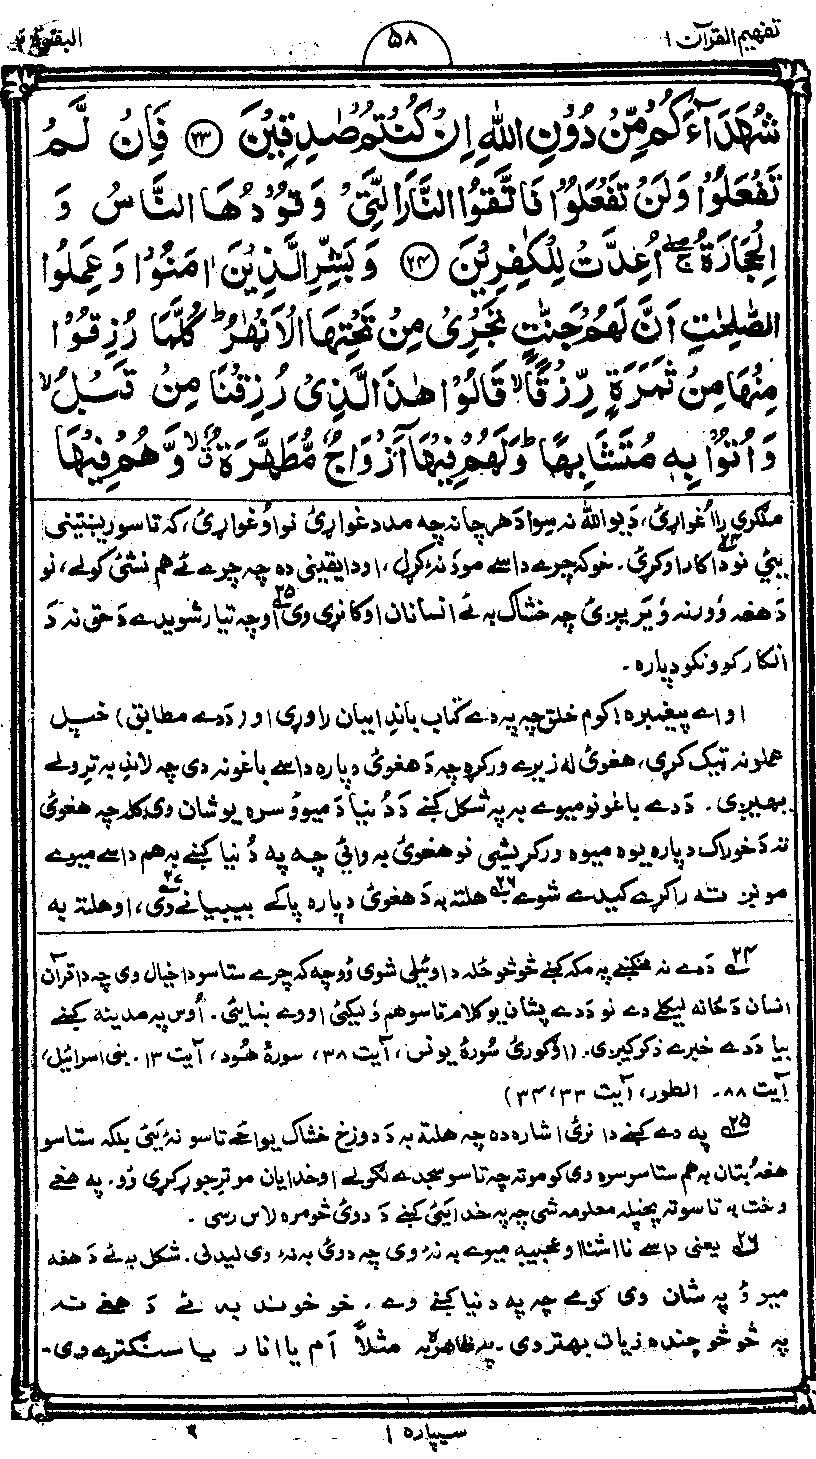 تفهیم القرآن ۱
۵۸
البقرة ۲
شُهَدَآءَكُمْ مِّنْ دُوْنِ اللّٰهِ اِنْ كُنْتُمْ صٰدِقِيْنَ ﴿۲۳﴾ فَاِنْ لَّمْ
تَفْعَلُوْا وَلَنْ تَفْعَلُوْا فَاتَّقُوا النَّارَ الَّتِيْ وَقُوْدُهَا النَّاسُ وَ
الْحِجَارَةُ ۖۚ اُعِدَّتْ لِلْكٰفِرِيْنَ ﴿۲۴﴾ وَبَشِّرِ الَّذِيْنَ اٰمَنُوْا وَعَمِلُوا
الصّٰلِحٰتِ اَنَّ لَهُمْ جَنّٰتٍ تَجْرِيْ مِنْ تَحْتِهَا الْاَنْهٰرُ ؕ كُلَّمَا رُزِقُوْا
مِنْهَا مِنْ ثَمَرَةٍ رِّزْقًا ۙ قَالُوْا هٰذَا الَّذِيْ رُزِقْنَا مِنْ قَبْلُ ۙ
وَاُتُوْا بِهٖ مُتَشَابِهًا ؕ وَلَهُمْ فِيْهَآ اَزْوَاجٌ مُّطَهَّرَةٌ ۙ وَّهُمْ فِيْهَا
ملګری را اُغواړئ، دَ یو الله نه سِوا دَ هر چا نه چه مدد غواړئ نو اُوغواړئ، که تاسو ریښتینی
یئی نو دا کار اوکړئ.۲۴ خو که چرے داسے مو دَ نهٔ کړل، او دا یقینی ده چه چرے ئے هم نشئ کولے، نو
دَ هغه اُور نه ویریږئ چه خشاک به ئے انسانان او کانړی وی۲۵ اوچه تیار شویدے دَ حق نه دَ
انکار کوونکو دپاره.
او اے پیغمبره! کوم خلق چه په دے کتاب باندِ ایمان راوړی او (دَ دے مطابق) خپل
عملونه نیک کړی، هغوئ له زیرے ورکړه چه دَ هغوئ دپاره داسے باغونه دی چه لاندِ به ترِ ولے
بهیږی. دَ دے باغونو میوے به په شکل کښے دَ دُنیا دَ میوو سره یو شان وی. کله چه هغوئ
ته دَ خوراک دپاره یوه میوه ورکړیشی نو هغوئ به وائی چه په دُنیا کښے به هم داسے میوے
مونږ ته راکړے کیدے شوے۲۶ هلته به دَ هغوئ دپاره پاکے بیبیانے وی۲۷، او هلته به
۲۴ دَ دے نه مخکښے په مکه کښے څو څو ځله دا وئیلی شوی وُو چه که چرے ستاسو دا خیال وی چه دا قرآن
انسان دَ ځانه لیکلے دے نو دَ دے پشان یو کلام تاسو هم وُلیکئ او وے ښایئ. اُوس په مدینه کښے
بیا دَ دے خبرے ذکر کیږی. (اُوګورئ سُورهٔ یونس، آیت ۳۸، سورهٔ هُود، آیت ۱۳. بنی اسرائیل،
آیت ۸۸. الطور، آیت ۳۳، ۳۴)
۲۵ په دے کښے دا نرئ اشاره ده چه هلته به دَ دوزخ خشاک یواځے تاسو نهٔ یئ بلکه ستاسو
هغه بُتان به هم ستاسو سره وی کوم ته چه تاسو سجدے لګولے او خدایان مو ترِ جوړ کړی وُو. په هغے
وخت به تاسو ته پخپله معلومه شی چه په خدایئ کښے دَ دوئ څومره لاس رسی.
۲۶ یعنی داسے نااشنا او عجیبه میوے به نهٔ وی چه دوئ به نهٔ وی لیدلی. شکل به ئے دَ هغه
میوو په شان وی کومے چه په دنیا کښے وے. خو خوند به ئے دَ هغے نه
په څو څو چنده زیات بهتر وی. په ظاهره به مثلاً آم یا انار یا سنګترے وی.
سیپاره ۱